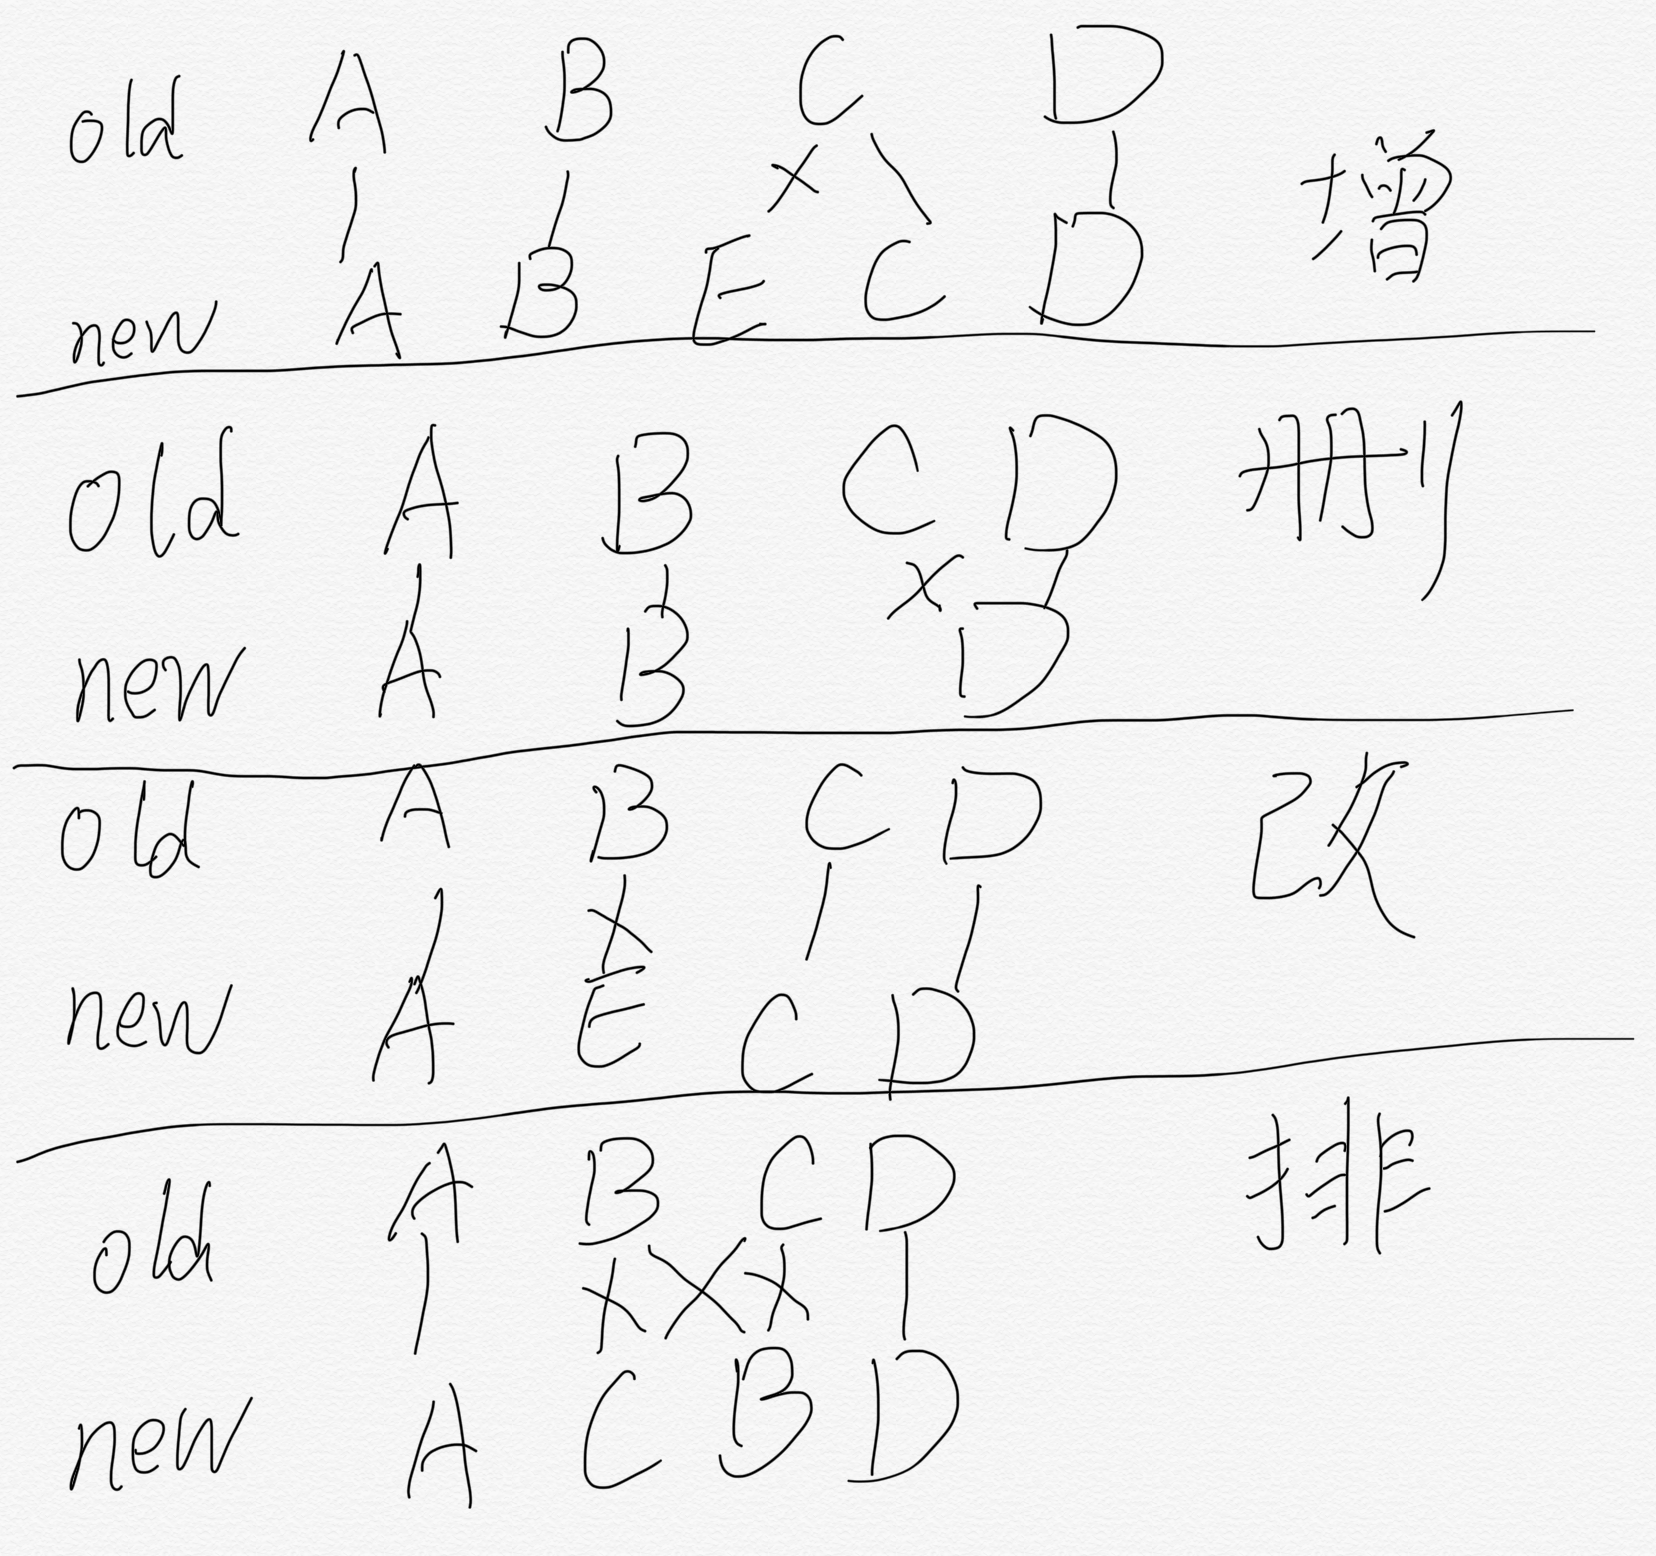 old A B C D
增
new A B E C D
old A B C D 删
new A B D
old A B C D 改
new A E C D
old A B C D 排
new A C B D